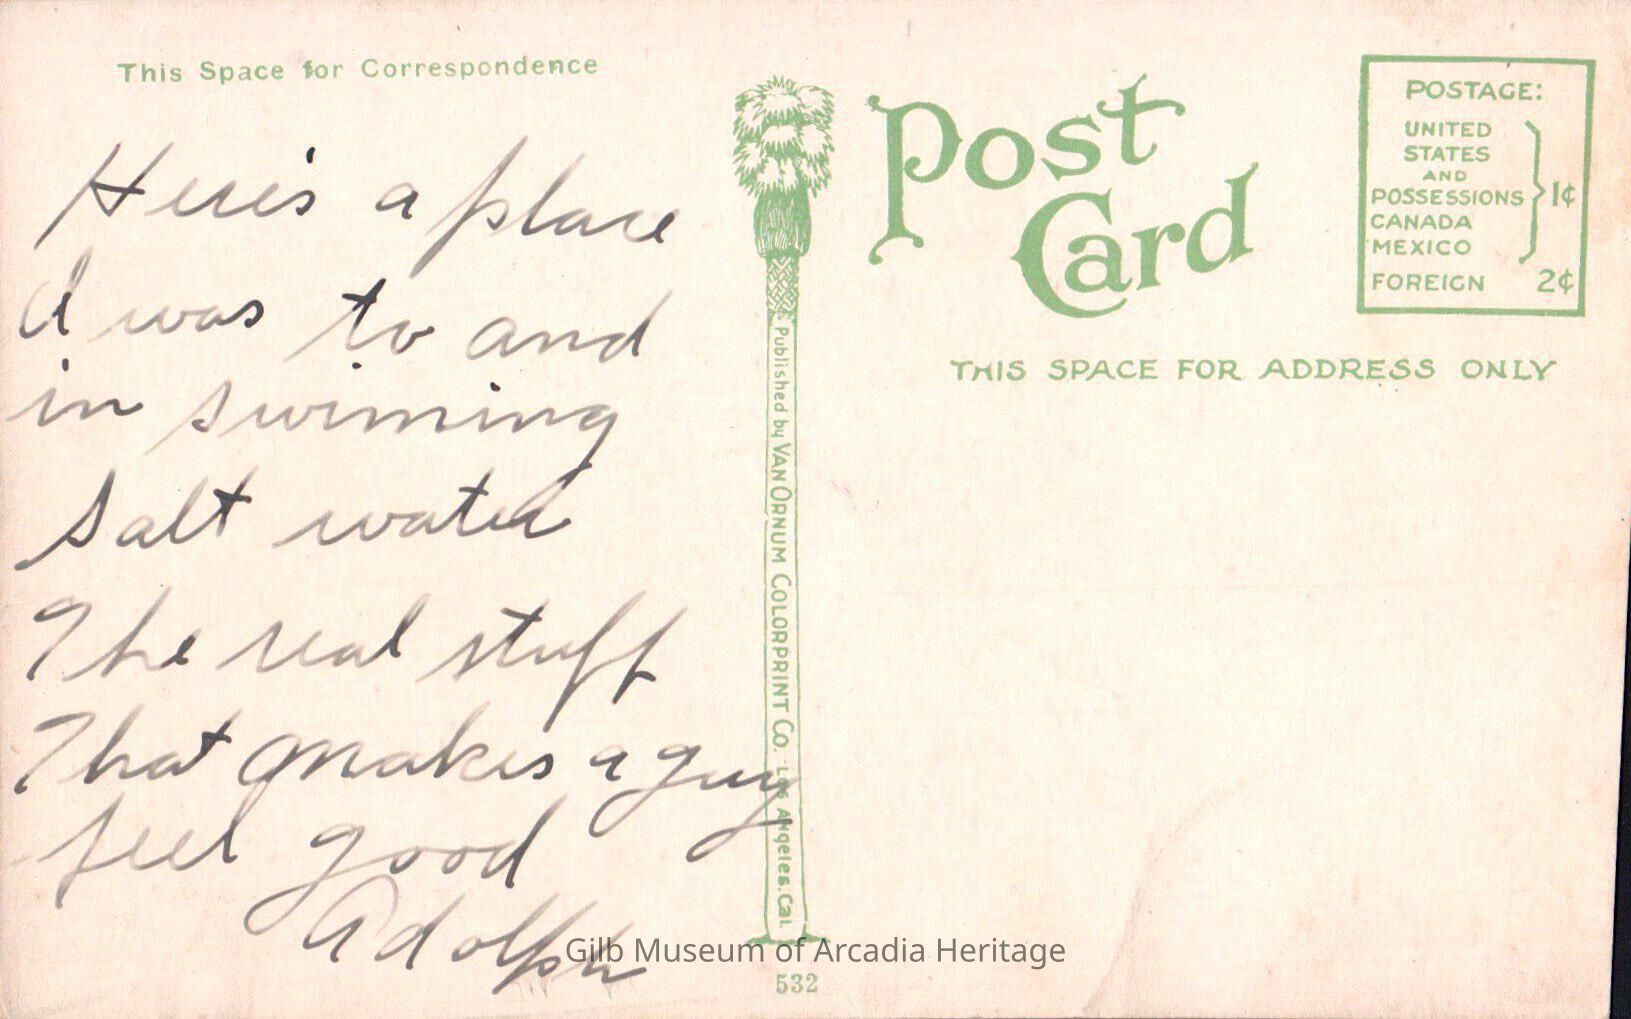 This Space for Correspondence
Here's a place
I was to and
in swiming
salt water
The real stuff
That makes a guy
feel good
Adolph
Published by VAN ORNUM COLORPRINT CO. - Los Angeles, Cal.
532
Post
Card
POSTAGE:
UNITED
STATES
AND
POSSESSIONS 1¢
CANADA
MEXICO
FOREIGN 2¢
THIS SPACE FOR ADDRESS ONLY
Gilb Museum of Arcadia Heritage